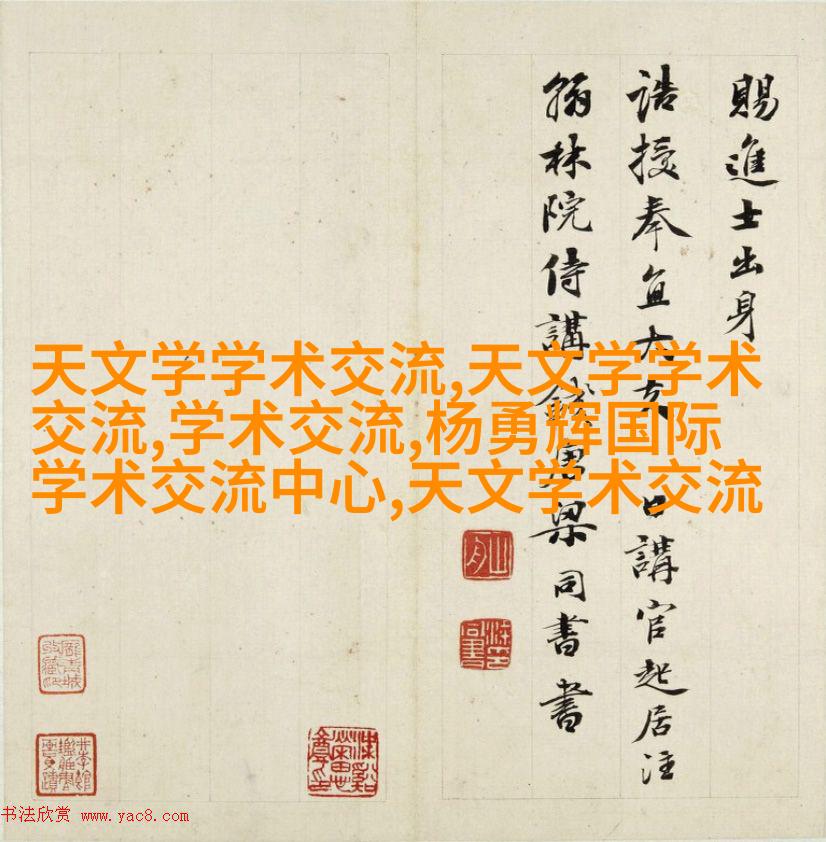 賜進士出身
誥授奉直大夫日講官起居注
翰林院侍講錢梁同書書
天文学学术交流,天文学学术
交流,学术交流,杨勇辉国际
学术交流中心,天文学术交流
书法欣赏 www.yac8.com